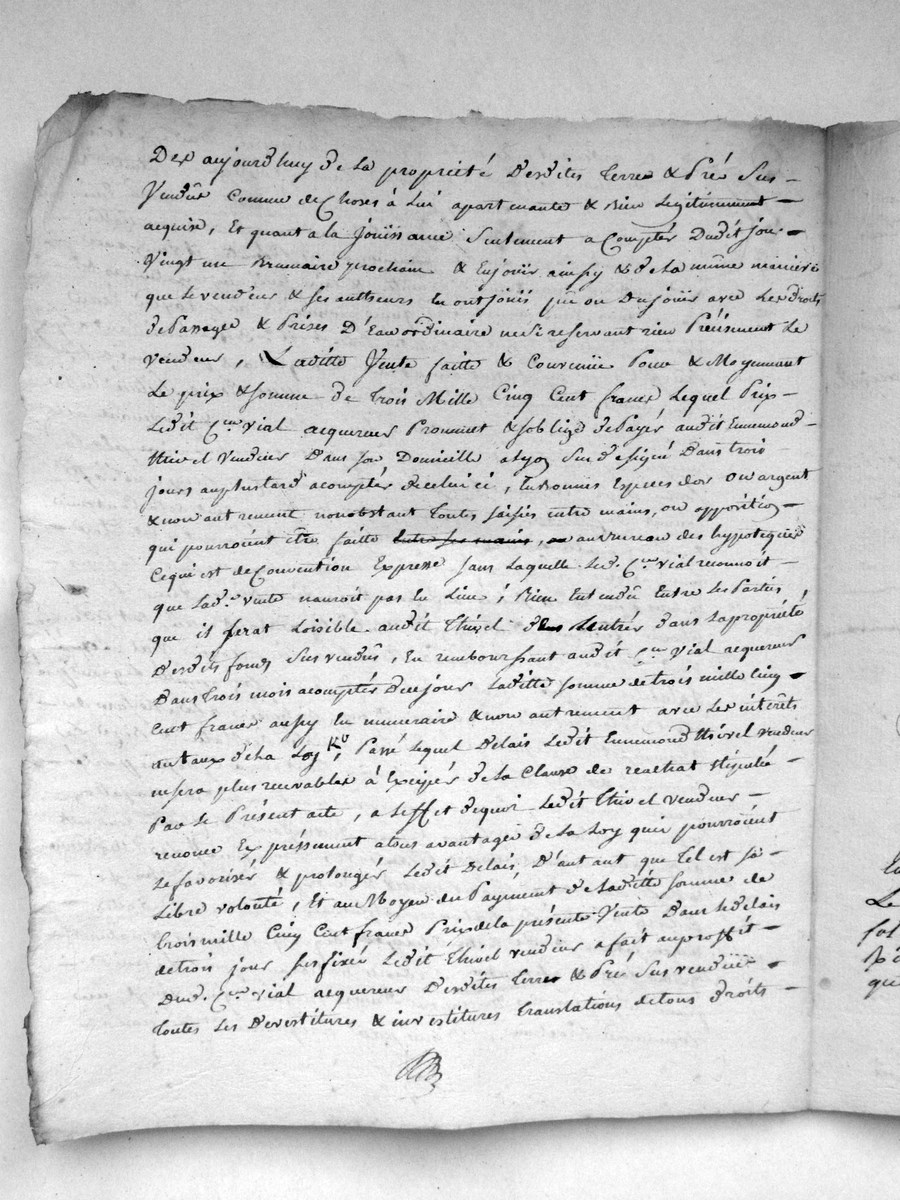 Des aujourdhuy de la propriété desdites terre & Pré sus-
vendûe comme de choses à lui apartenante & bien legitimement
acquise, Et quant a la joüissance seulement a compter dudit jour
vingt un Brumaire prochain & En joüir ainsy & de la même maniere
que le vendeur & ses autheurs en ont joüii pû ou du joüir avec les droits
de Passage & Prises D'Eau ordinaire ne se reservant rien Précisement le
vendeur, Laditte Vente faitte & Convenüe Pour & Moyennant
Le prix & somme de trois Mille Cinq Cent francs Lequel Prix
Ledit Cen Vial acquereur Prommet & soblige de Payer audit Ennemond
thivel vendeur Dans son Domicille a Lyon sus designé Dans trois
jours au plustard a compter de celui ci, En bonnes Especes dor ou argent
& non autrement nonobstant toutes saisies entre mains, ou opposition
qui pourroient être faitte entre ses mains, ou au bureau des hypoteques
Ce qui est de Convention Expresse sans Laquelle led. Cen Vial reconnoit
que lad.e vente nauroit pas eu Lieu; Bien Entendû Entre les Parties
que il serat Loisible audit thivel de rentrer dans la propriété
Desdits fonds sus vendus, En remboursant audit Cen Vial acquereur
Dans trois mois a compter de ce jour Laditte somme de trois mille cinq
Cent francs aussy En numeraire & non autrement avec les interêts
au taux de la Loy; Passé Lequel Delais Ledit Ennemond thivel vendeur
ne sera plus recevables à Exciper de la Clause de reachat stipulée
Par le Présent acte, a leffet de quoi Ledit thivel vendeur
renonce Expressement a tous avantages de la Loy qui pourroient
le favoriser & prolonger Ledit Delais D'autant que tel est sa
Libre volonté, Et au Moyen du Payement de laditte somme de
trois mille Cinq Cent francs Prix de la présente Vente Dans le delais
de trois jours sus fixé Ledit thivel vendeur a fait au proffit
Dud. Cen Vial acquereur Desdites terre & Pré sus vendûe
toutes les Devestitures & investitures translations de tous droits